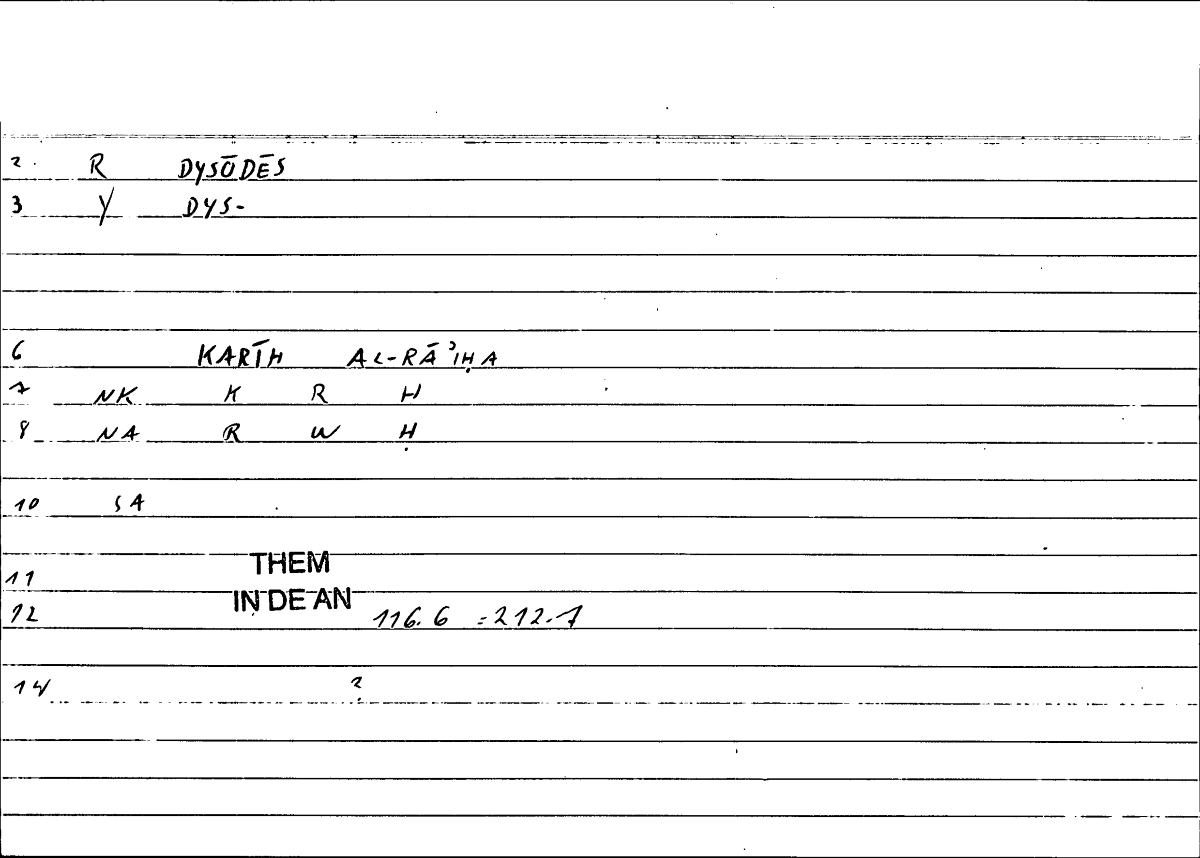 2. R DYSŌDĒS
3 Y DYS-
6 KARĪH AL-RĀʾIḤA
7 NK K R H
8 NA R W Ḥ
10 SA
11 THEM
12 IN DE AN 116.6 =212.7
14 ?